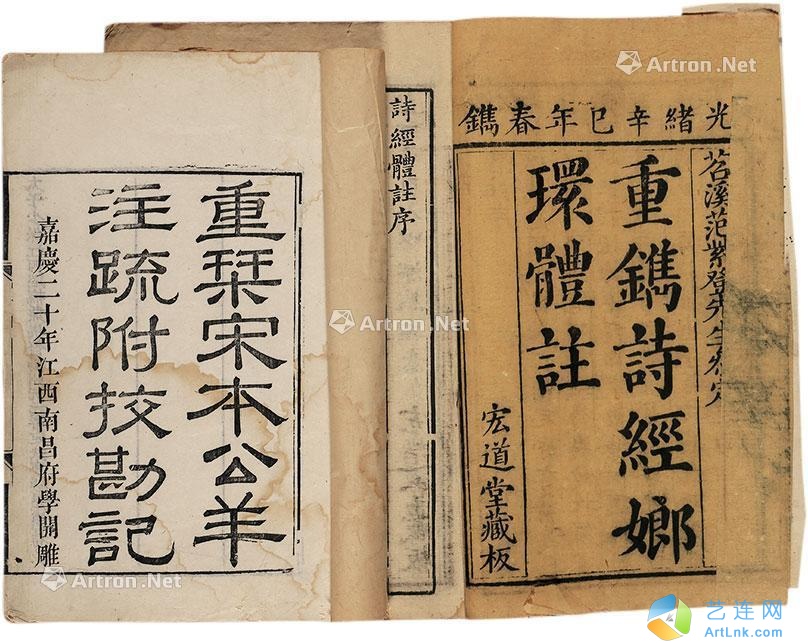 光緒辛巳年春鐫
苕溪范紫登先生參定
重鐫詩經嫏
環體註
宏道堂藏板
詩經體註序
重栞宋本公羊
注疏附挍勘記
嘉慶二十年江西南昌府學開雕
Artron.Net
Artron.Net
Artron.Net
Artron.Net
Artron.Net
艺连网
ArtLnk.com